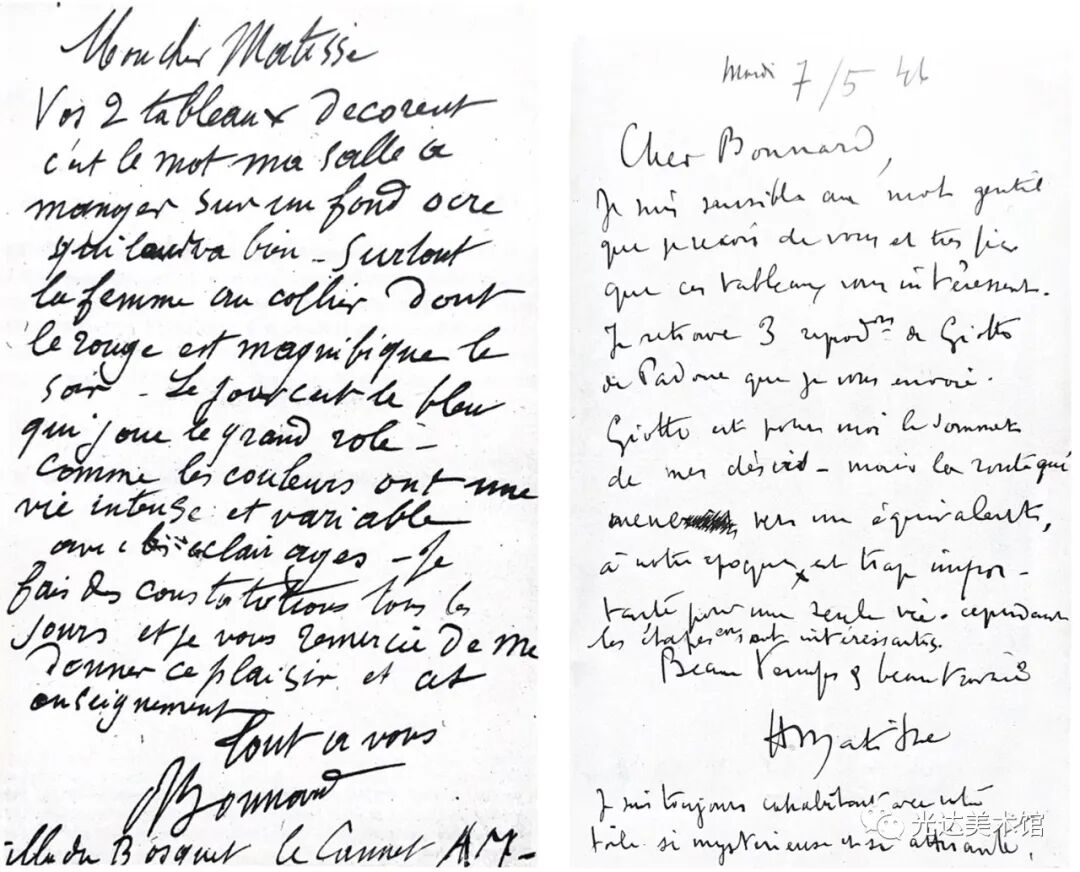 Mon cher Matisse
Vos 2 tableaux decorent
c'est le mot ma salle a
manger sur un fond ocre
qui leur va bien - Surtout
la femme au collier dont
le rouge est magnifique le
soir - Le jour c'est le bleu
qui joue le grand role -
Comme les couleurs ont une
vie intense et variable
avec les eclairages - Je
fais des constatations tous les
jours et je vous remercie de me
donner ce plaisir et cet
enseignement
Tout a vous
PBonnard
Villa du Bosquet le Cannet A.M-
Mardi 7/5 46
Cher Bonnard,
Je suis sensible au mot gentil
que je reçois de vous et très fier
que ces tableaux vous intéressent.
Je retrouve 3 reprod.ons de Giotto
de Padoue que je vous envoie.
Giotto est pour moi le sommet
de mes désirs - mais la route qui
mène vers un équivalent,
à notre époque, est trop impor-
tante pour une seule vie. cependant
les étapes en sont intéressantes.
Beau temps & beau travail
HMatisse
Je suis toujours cohabitant avec votre
toile si mystérieuse et si attirante.
光达美术馆